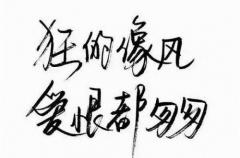 狂的像风
爱恨都匆匆